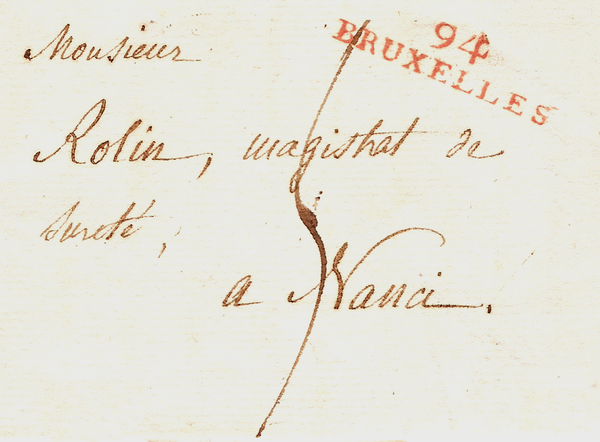 94
BRUXELLES
Monsieur
Rolin, magistrat de
sureté,
a Nanci.